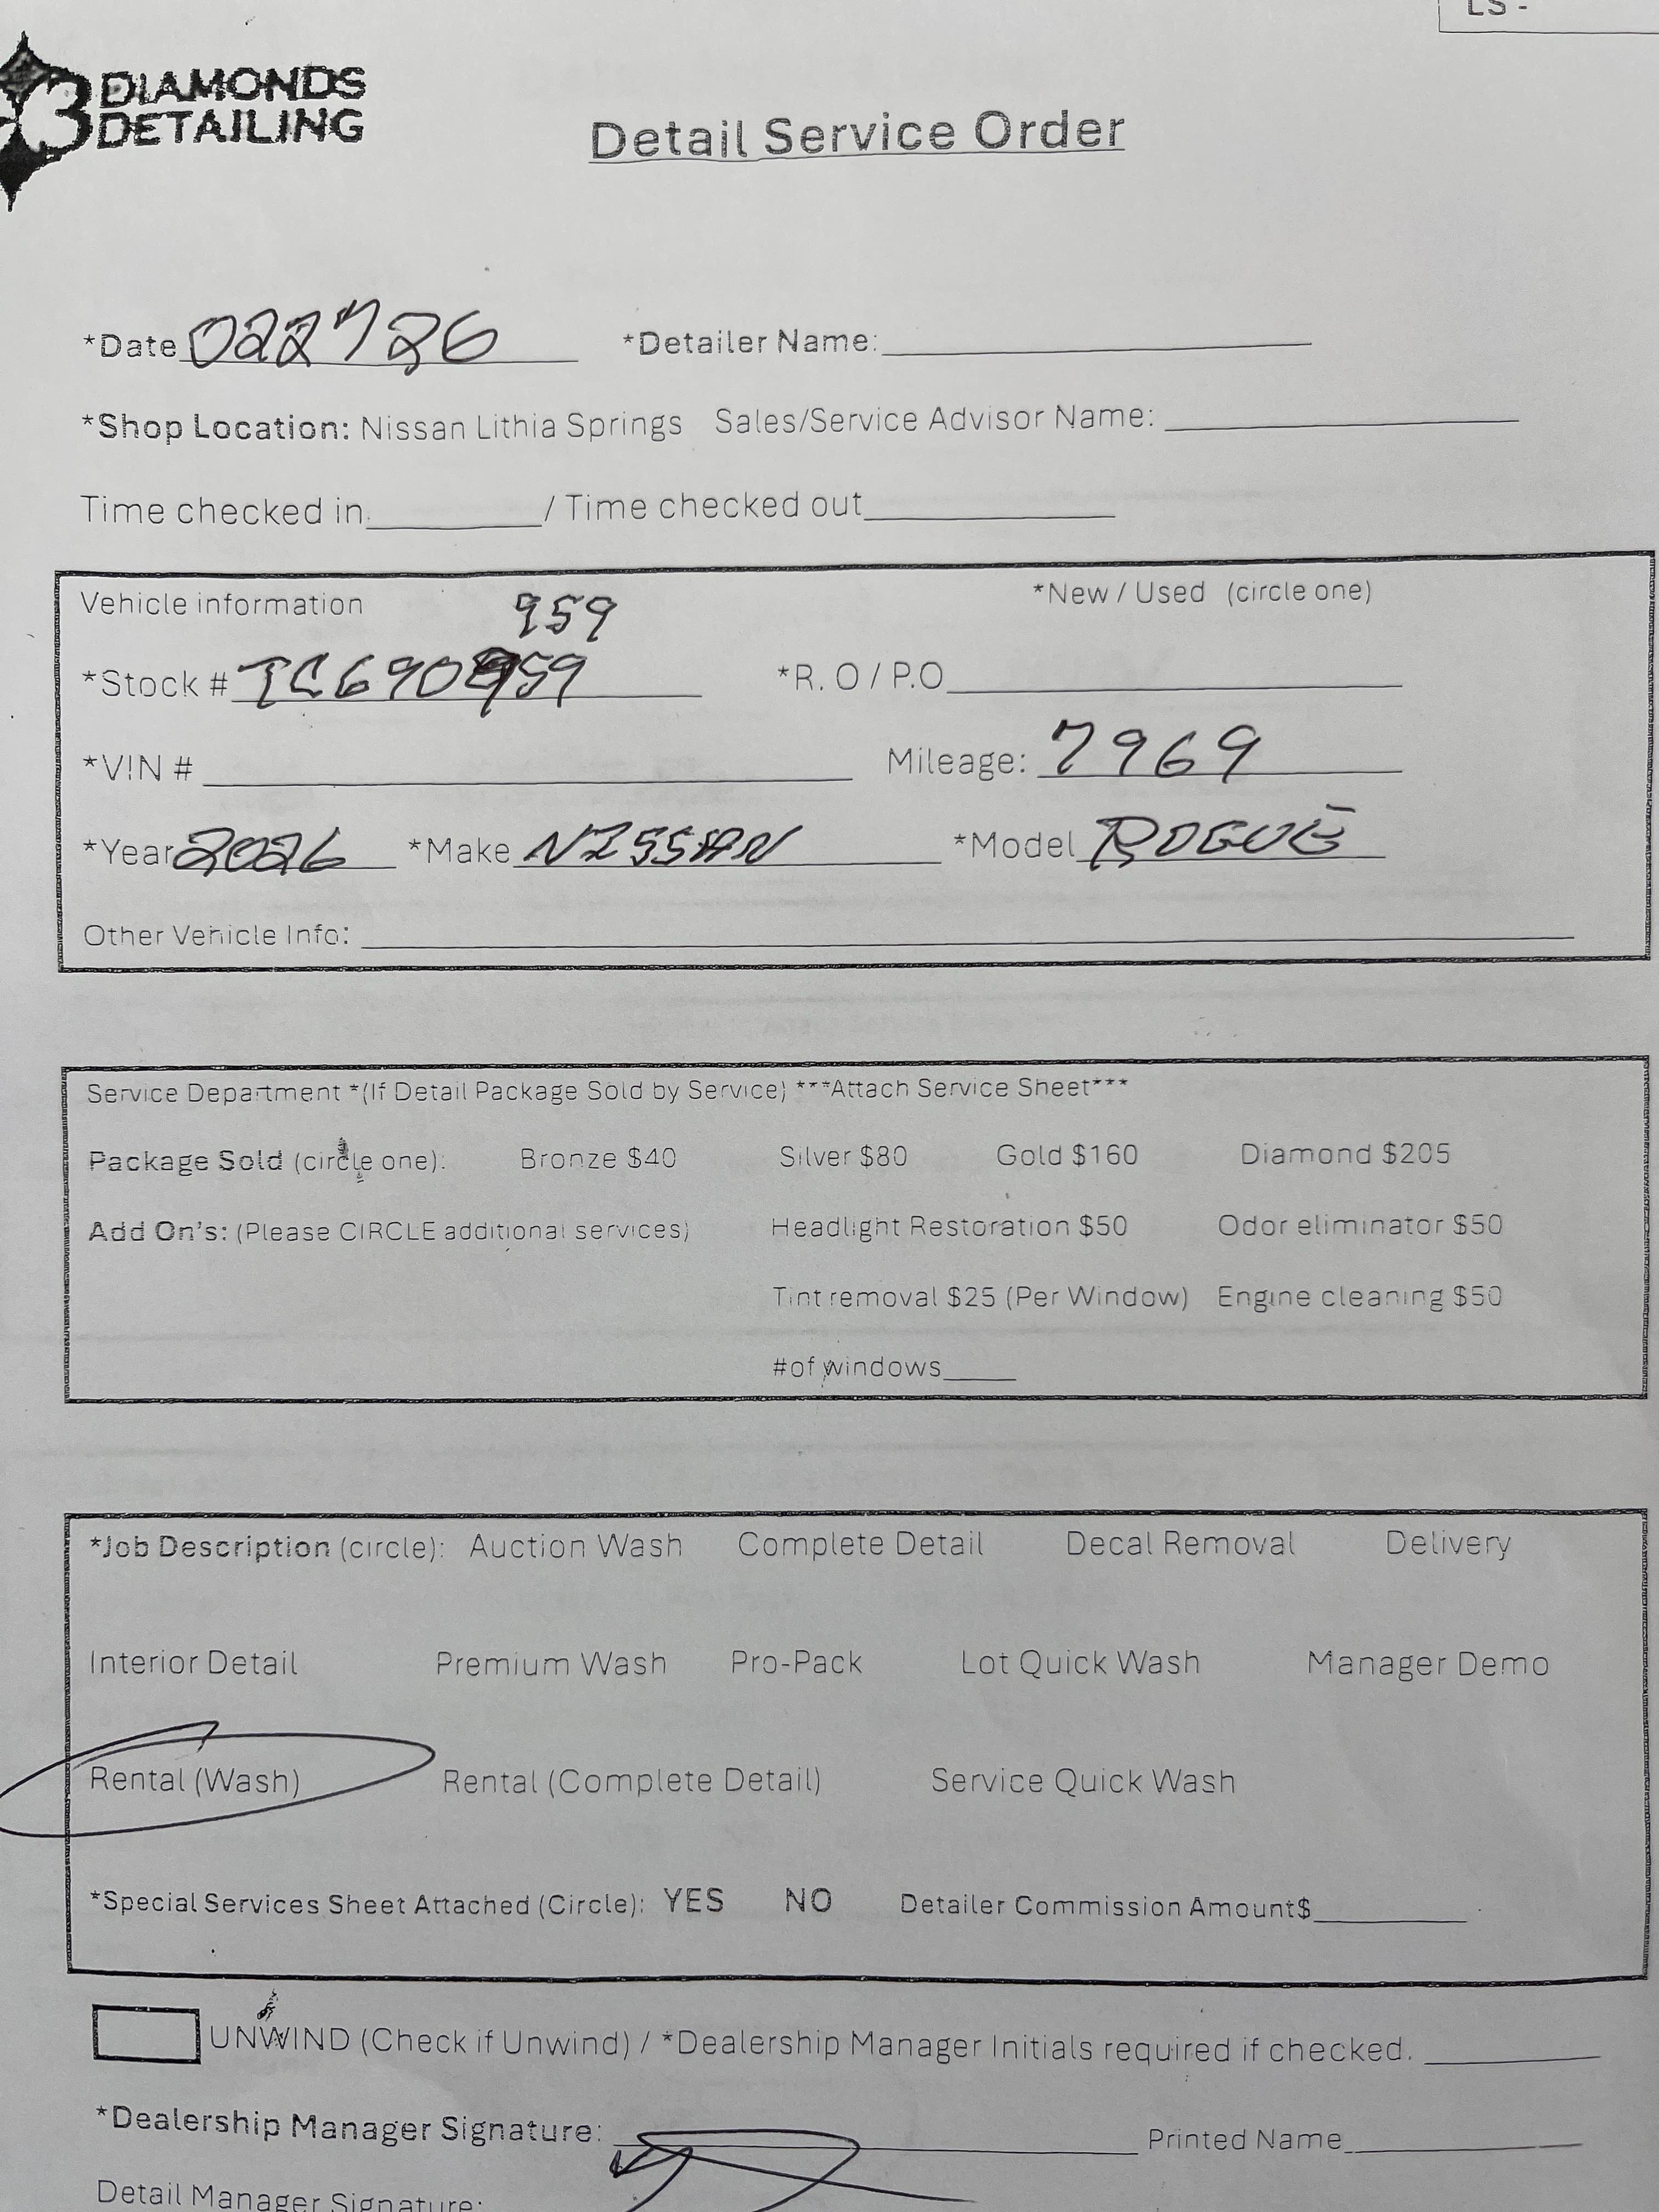 LS -
3 DIAMONDS
DETAILING
Detail Service Order
*Date 022726 *Detailer Name:
*Shop Location: Nissan Lithia Springs Sales/Service Advisor Name:
Time checked in / Time checked out
Vehicle information 959 *New / Used (circle one)
*Stock # TC690959 *R. O / P.O
*VIN # Mileage: 7969
*Year 2026 *Make NISSAN *Model ROGUE
Other Vehicle Info:
Service Department *(If Detail Package Sold by Service) ***Attach Service Sheet***
Package Sold (circle one): Bronze $40 Silver $80 Gold $160 Diamond $205
Add On's: (Please CIRCLE additional services) Headlight Restoration $50 Odor eliminator $50
Tint removal $25 (Per Window) Engine cleaning $50
#of windows
*Job Description (circle): Auction Wash Complete Detail Decal Removal Delivery
Interior Detail Premium Wash Pro-Pack Lot Quick Wash Manager Demo
Rental (Wash) Rental (Complete Detail) Service Quick Wash
*Special Services Sheet Attached (Circle): YES NO Detailer Commission Amount$
UNWIND (Check if Unwind) / *Dealership Manager Initials required if checked.
*Dealership Manager Signature: Printed Name
Detail Manager Signature: